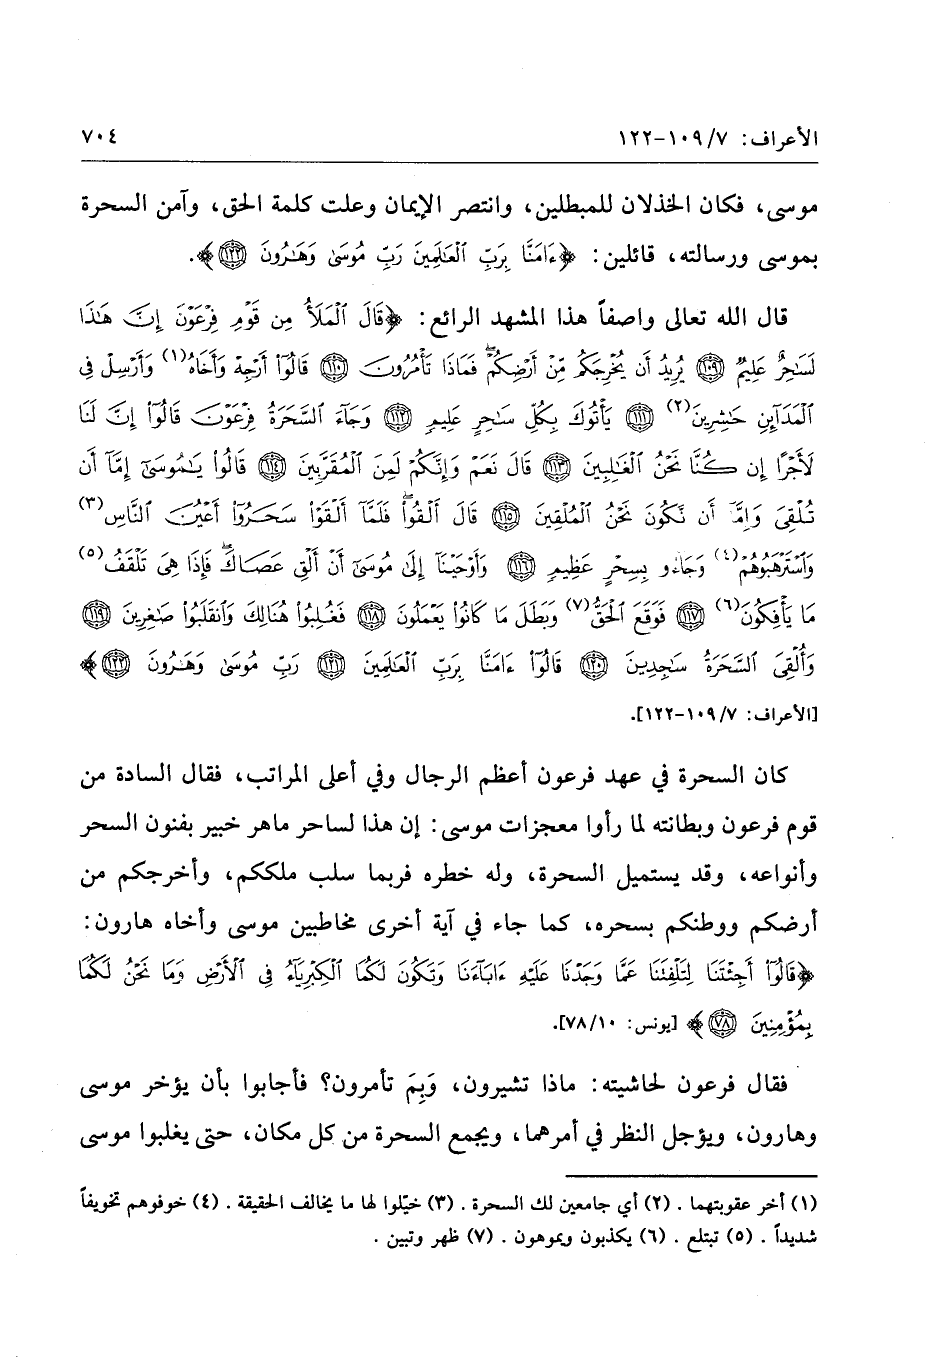 الأعراف: ٧/ ١٠٩-١٢٢ ٧٠٤
موسى، فكان الخذلان للمبطلين، وانتصر الإيمان وعلت كلمة الحق، وآمن السحرة
بموسى ورسالته، قائلين: ﴿ءَامَنَّا بِرَبِّ ٱلْعَالَمِينَ رَبِّ مُوسَىٰ وَهَٰرُونَ ﴿١٢٢﴾﴾.
قال الله تعالى واصفاً هذا المشهد الرائع: ﴿قَالَ ٱلْمَلَأُ مِن قَوْمِ فِرْعَوْنَ إِنَّ هَٰذَا
لَسَٰحِرٌ عَلِيمٌ ﴿١٠٩﴾ يُرِيدُ أَن يُخْرِجَكُم مِّنْ أَرْضِكُمْ ۖ فَمَاذَا تَأْمُرُونَ ﴿١١٠﴾ قَالُوٓا۟ أَرْجِهْ وَأَخَاهُ(١) وَأَرْسِلْ فِى
ٱلْمَدَآئِنِ حَٰشِرِينَ(٢) ﴿١١١﴾ يَأْتُوكَ بِكُلِّ سَٰحِرٍ عَلِيمٍ ﴿١١٢﴾ وَجَآءَ ٱلسَّحَرَةُ فِرْعَوْنَ قَالُوٓا۟ إِنَّ لَنَا
لَأَجْرًا إِن كُنَّا نَحْنُ ٱلْغَٰلِبِينَ ﴿١١٣﴾ قَالَ نَعَمْ وَإِنَّكُمْ لَمِنَ ٱلْمُقَرَّبِينَ ﴿١١٤﴾ قَالُوا۟ يَٰمُوسَىٰٓ إِمَّآ أَن
تُلْقِىَ وَإِمَّآ أَن نَّكُونَ نَحْنُ ٱلْمُلْقِينَ ﴿١١٥﴾ قَالَ أَلْقُوا۟ ۖ فَلَمَّآ أَلْقَوْا۟ سَحَرُوٓا۟ أَعْيُنَ ٱلنَّاسِ(٣)
وَٱسْتَرْهَبُوهُمْ(٤) وَجَآءُو بِسِحْرٍ عَظِيمٍ ﴿١١٦﴾ وَأَوْحَيْنَآ إِلَىٰ مُوسَىٰٓ أَنْ أَلْقِ عَصَاكَ ۖ فَإِذَا هِىَ تَلْقَفُ(٥)
مَا يَأْفِكُونَ(٦) ﴿١١٧﴾ فَوَقَعَ ٱلْحَقُّ(٧) وَبَطَلَ مَا كَانُوا۟ يَعْمَلُونَ ﴿١١٨﴾ فَغُلِبُوا۟ هُنَالِكَ وَٱنقَلَبُوا۟ صَٰغِرِينَ ﴿١١٩﴾
وَأُلْقِىَ ٱلسَّحَرَةُ سَٰجِدِينَ ﴿١٢٠﴾ قَالُوٓا۟ ءَامَنَّا بِرَبِّ ٱلْعَٰلَمِينَ ﴿١٢١﴾ رَبِّ مُوسَىٰ وَهَٰرُونَ ﴿١٢٢﴾﴾
[الأعراف: ٧/ ١٠٩-١٢٢].
كان السحرة في عهد فرعون أعظم الرجال وفي أعلى المراتب، فقال السادة من
قوم فرعون وبطانته لما رأوا معجزات موسى: إن هذا لساحر ماهر خبير بفنون السحر
وأنواعه، وقد يستميل السحرة، وله خطره فربما سلب ملككم، وأخرجكم من
أرضكم ووطنكم بسحره، كما جاء في آية أخرى مخاطبين موسى وأخاه هارون:
﴿قَالُوٓا۟ أَجِئْتَنَا لِتَلْفِتَنَا عَمَّا وَجَدْنَا عَلَيْهِ ءَابَآءَنَا وَتَكُونَ لَكُمَا ٱلْكِبْرِيَآءُ فِى ٱلْأَرْضِ وَمَا نَحْنُ لَكُمَا
بِمُؤْمِنِينَ ﴿٧٨﴾﴾ [يونس: ١٠/ ٧٨].
فقال فرعون لحاشيته: ماذا تشيرون، وَبِمَ تأمرون؟ فأجابوا بأن يؤخر موسى
وهارون، ويؤجل النظر في أمرهما، ويجمع السحرة من كل مكان، حتى يغلبوا موسى
(١) أخر عقوبتهما . (٢) أي جامعين لك السحرة . (٣) خيّلوا لها ما يخالف الحقيقة . (٤) خوفوهم تخويفاً
شديداً . (٥) تبتلع . (٦) يكذبون ويموهون . (٧) ظهر وتبين .